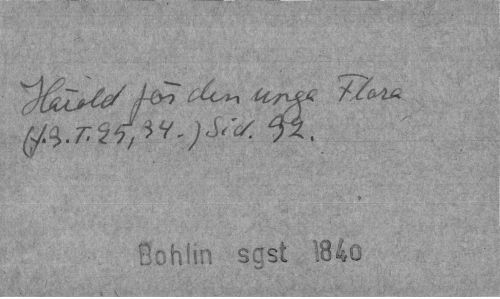 Harold för den unga Flora
(J.3.T.25,34.) Sid. 92.
Bohlin sgst 1840